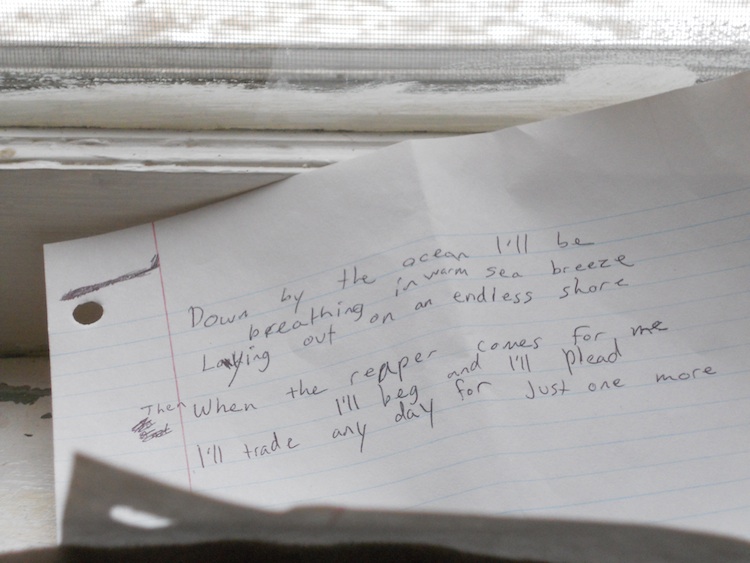 Down by the ocean I'll be
breathing in warm sea breeze
Laying out on an endless shore
Then When the reaper comes for me
I'll beg and I'll plead
I'll trade any day for just one more